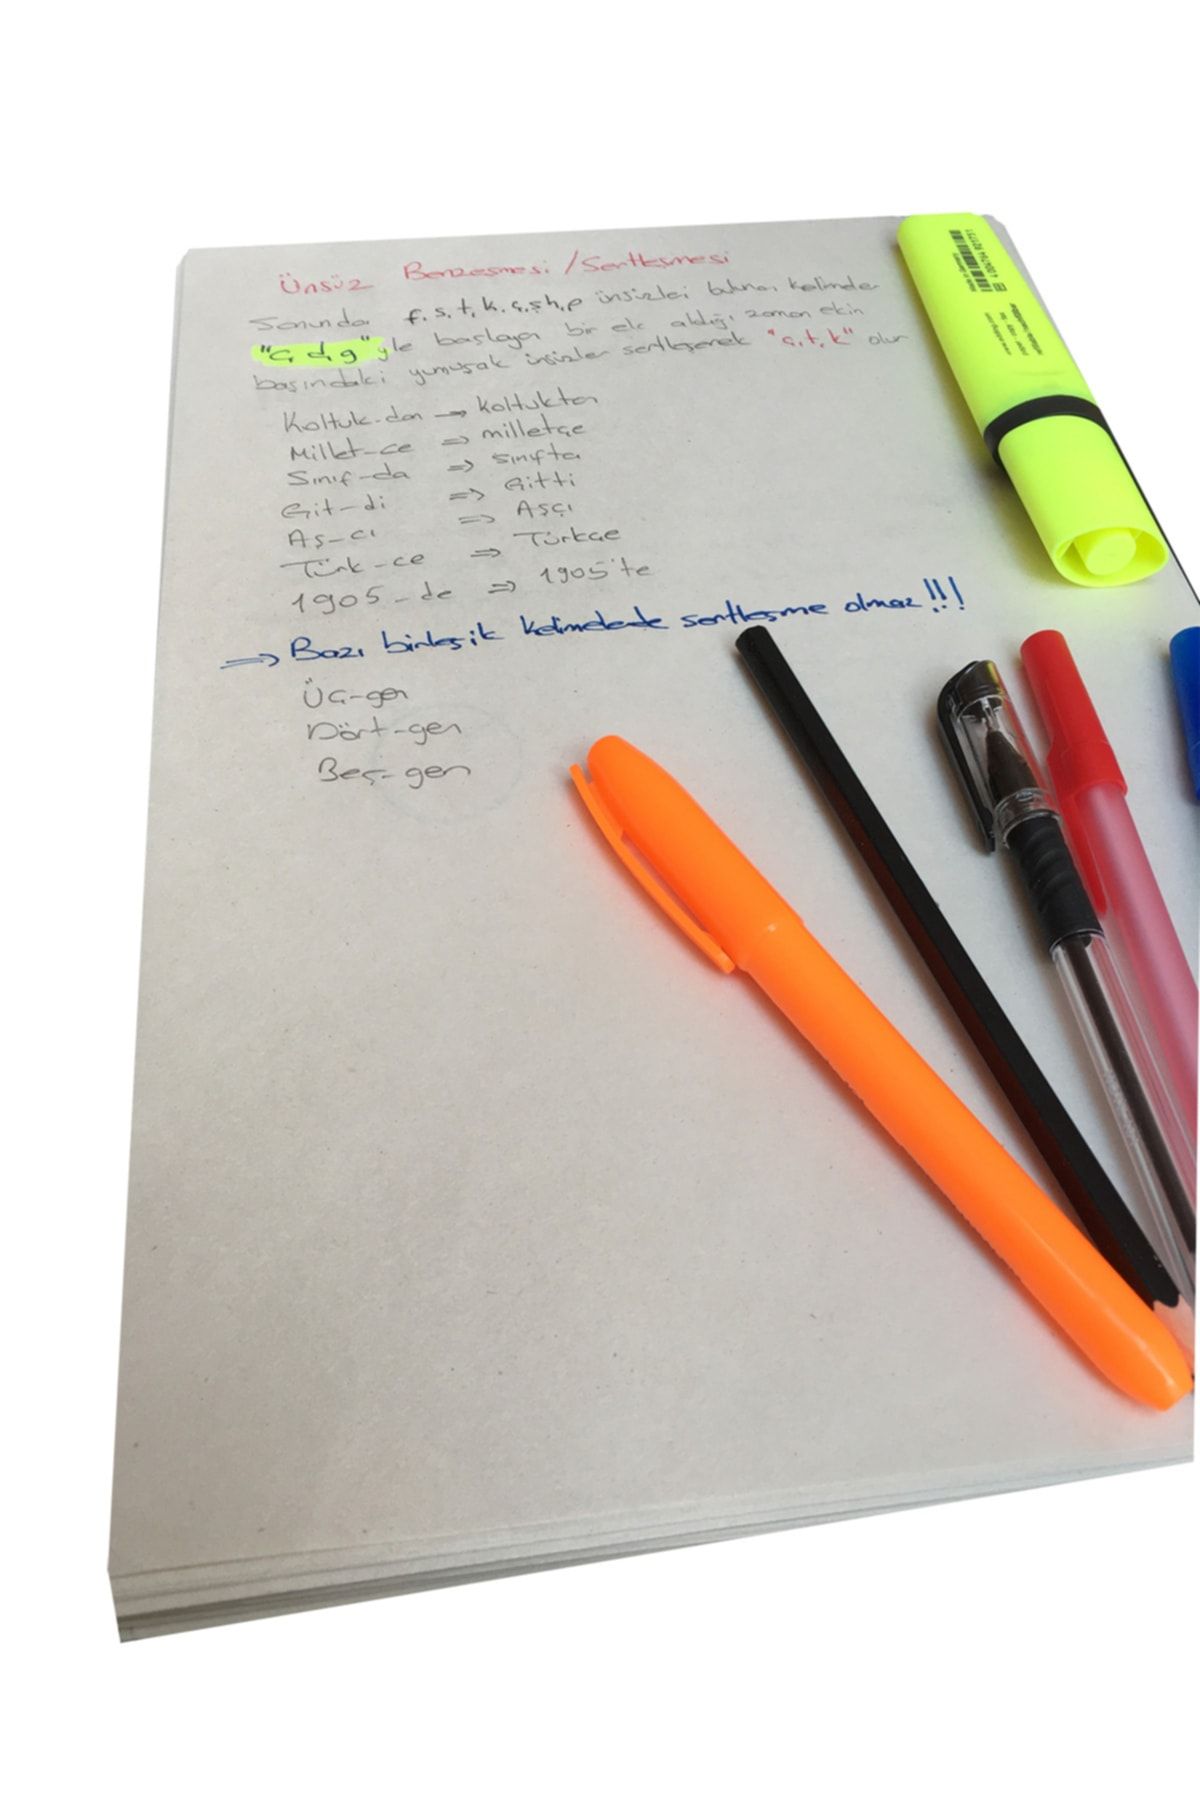 Ünsüz Benzeşmesi / Sertleşmesi
Sonunda f, s, t, k, ç, ş, h, p ünsüzleri bulunan kelimeler
"c, d, g" yle başlayan bir ek aldığı zaman ekin
başındaki yumuşak ünsüzler sertleşerek "ç, t, k" olur
Koltuk-dan → koltuktan
Millet-ce ⇒ milletçe
Sınıf-da ⇒ sınıfta
Git-di ⇒ Gitti
Aş-cı ⇒ Aşçı
Türk-ce ⇒ Türkçe
1905-de ⇒ 1905'te
⇒ Bazı birleşik kelimelerde sertleşme olmaz!!!
Üç-gen
Dört-gen
Beş-gen